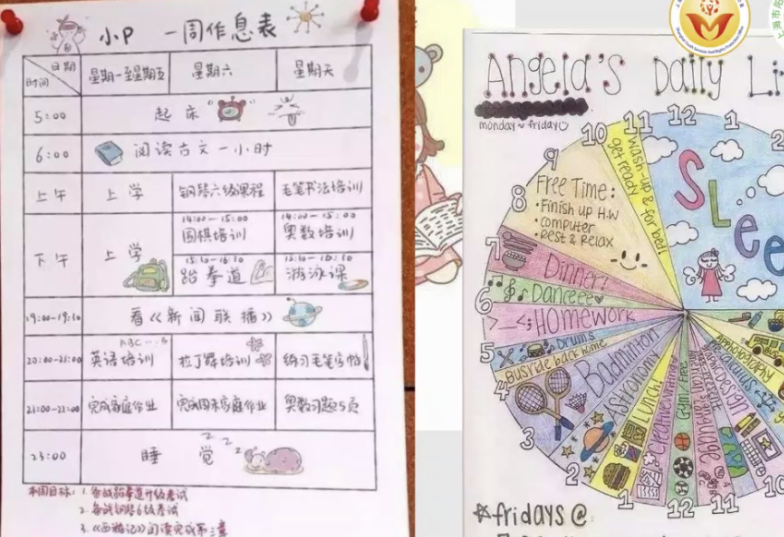 小P 一周作息表
日期
时间
星期一至星期五
星期六
星期天
5:00
起床
6:00
阅读古文一小时
上午
上学
钢琴六级课程
毛笔书法培训
下午
上学
14:00-15:00
围棋培训
14:00-15:00
奥数培训
跆拳道
游泳课
看《新闻联播》
20:00-21:00
英语培训
拉丁舞培训
练习毛笔字帖
21:00-22:00
完成家庭作业
完成周末家庭作业
奥数习题5页
23:00
睡觉
本周目标:
1. 备战跆拳道升级考试
2. 备战钢琴6级考试
Angela's Daily Li
monday ~ friday
12
1
11
10
9
8
7
6
5
4
3
2
1
12
11
10
Sleep
wash-up &
get ready for bed!
Free Time:
• Finish up H.W
• computer
• Rest & Relax
Dinner!
Danceee
>_<; HOMEWORK
Drums
Busride back home
Badminton
Astronomy
Lunch!
Creative Writing
Gym/Free
DESIGN
fridays @